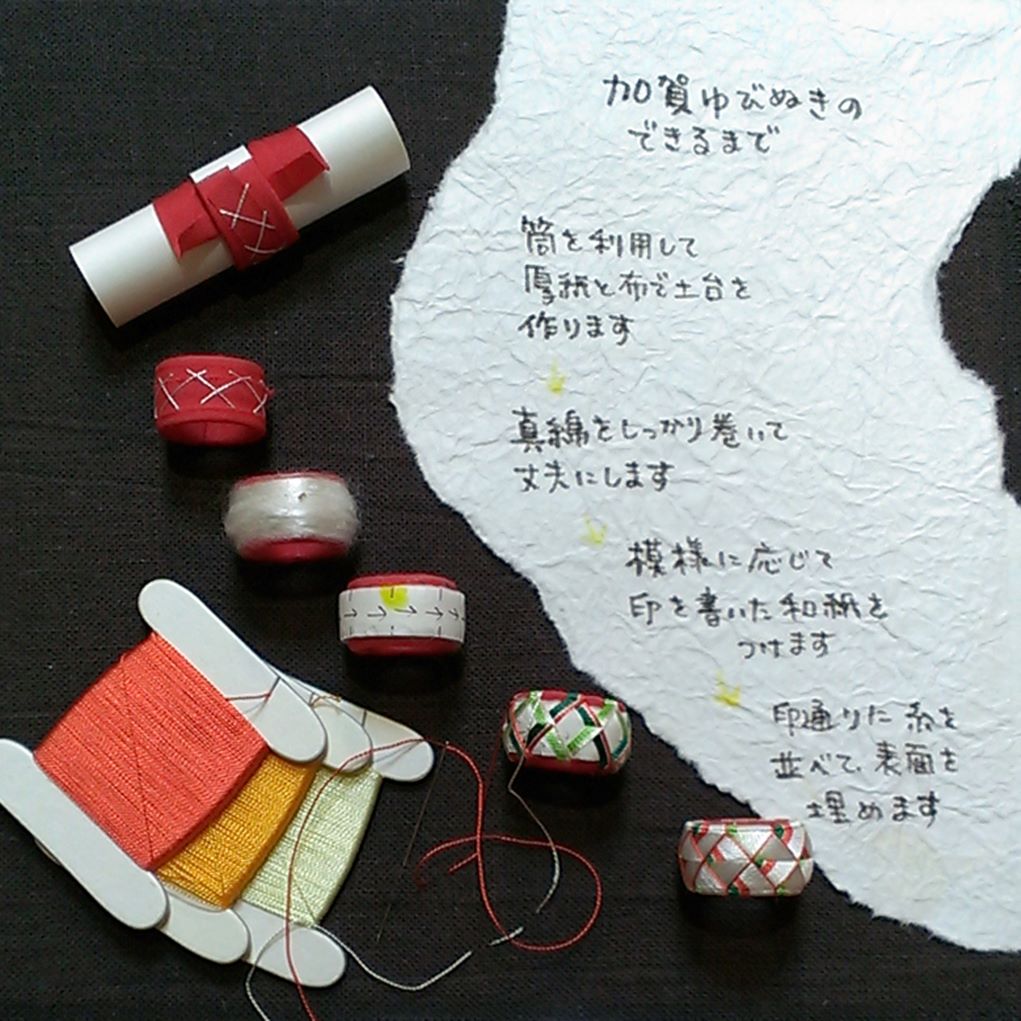 加賀ゆびぬきの
できるまで
筒を利用して
厚紙と布で土台を
作ります
真綿をしっかり巻いて
丈夫にします
模様に応じて
印を書いた和紙を
つけます
印通りに糸を
並べて、表面を
埋めます